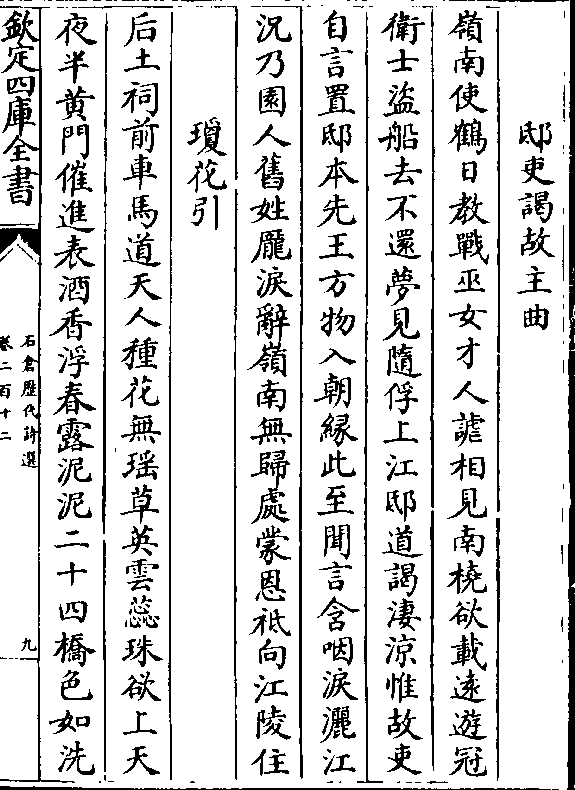 邸吏謁故主曲
嶺南使鶴日教戰巫女才人謔相見南橈欲載逺遊冠
衛士盜船去不還夢見隨俘上江邸道謁淒涼惟故吏
自言置邸本先王方物入朝縁此至聞言含咽淚灑江
況乃園人舊姓龎淚辭嶺南無歸處蒙恩祗向江陵住
瓊花引
后土祠前車馬道天人種花無瑶草英雲蕊珠欲上天
夜半黄門催進表酒香浮春露泥泥二十四橋色如洗
欽定四庫全書
石倉歴代詩選
卷二百十二
九